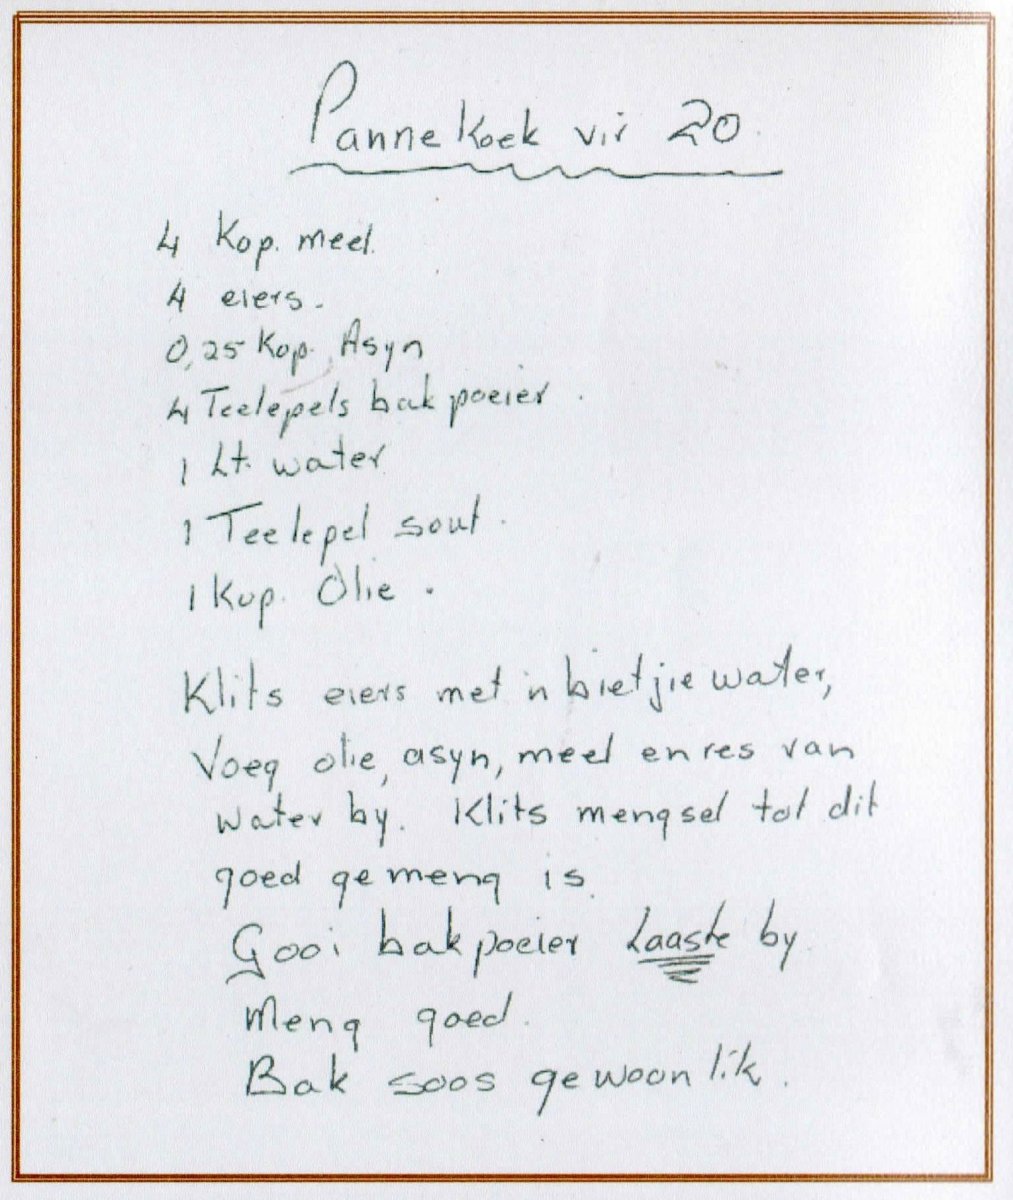 Pannekoek vir 20
4 Kop. meel.
4 eiers.
0,25 Kop. Asyn
4 Teelepels bakpoeier.
1 Lt. water
1 Teelepel sout.
1 Kop. Olie.
Klits eiers met 'n bietjie water,
Voeg olie, asyn, meel en res van
water by. Klits mengsel tot dit
goed gemeng is.
Gooi bakpoeier Laaste by
Meng goed.
Bak soos gewoonlik.